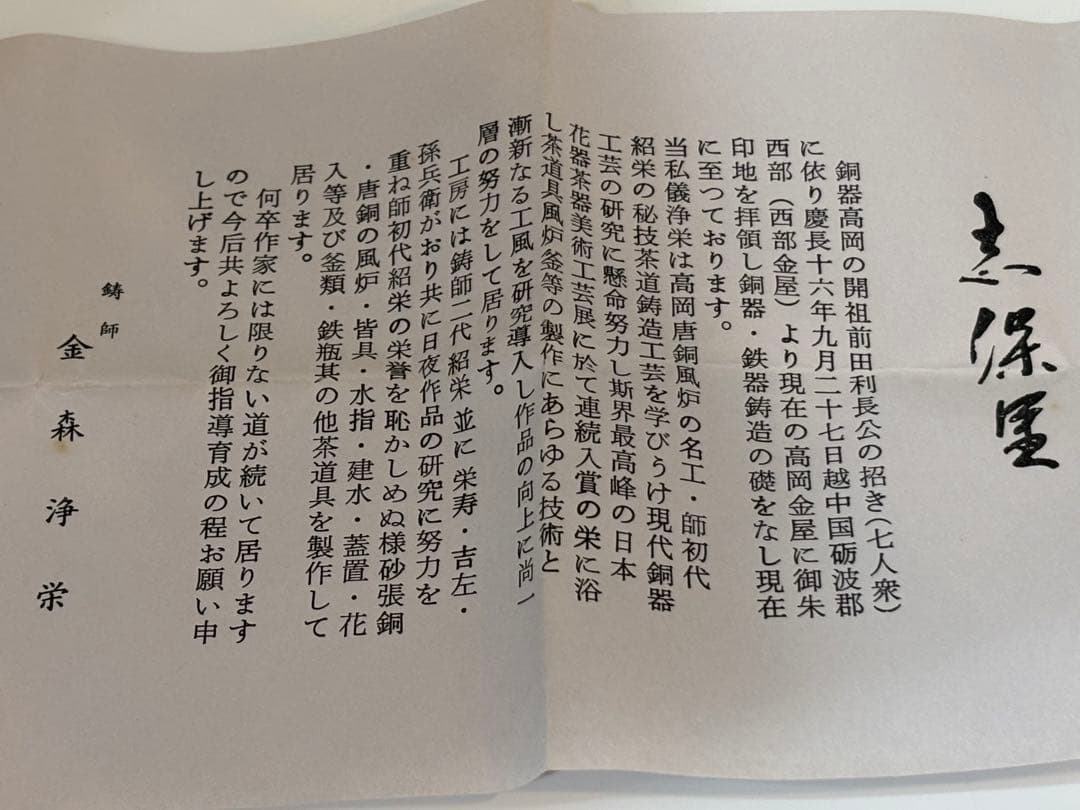 志保里
銅器高岡の開祖前田利長公の招き(七人衆)
に依り慶長十六年九月二十七日越中国砺波郡
西部(西部金屋)より現在の高岡金屋に御朱
印地を拝領し銅器・鉄器鋳造の礎をなし現在
に至つております。
当私儀浄栄は高岡唐銅風炉の名工・師初代
紹栄の秘技茶道鋳造工芸を学びうけ現代銅器
工芸の研究に懸命努力し斯界最高峰の日本
花器茶器美術工芸展に於て連続入賞の栄に浴
し茶道具風炉釜等の製作にあらゆる技術と
漸新なる工風を研究導入し作品の向上に尚一
層の努力をして居ります。
工房には鋳師二代紹栄 並に 栄寿・吉左・
孫兵衛がおり共に日夜作品の研究に努力を
重ね師初代紹栄の栄誉を恥かしめぬ様砂張銅
・唐銅の風炉・皆具・水指・建水・蓋置・花
入等及び釜類・鉄瓶其の他茶道具を製作して
居ります。
何卒作家には限りない道が続いて居ります
ので今后共よろしく御指導育成の程お願い申
し上げます。
鋳師
金森浄栄